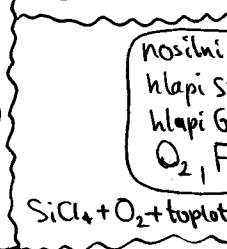 nosilni
hlapi S
hlapi G
O₂, F
SiCl₄ + O₂ + toplot